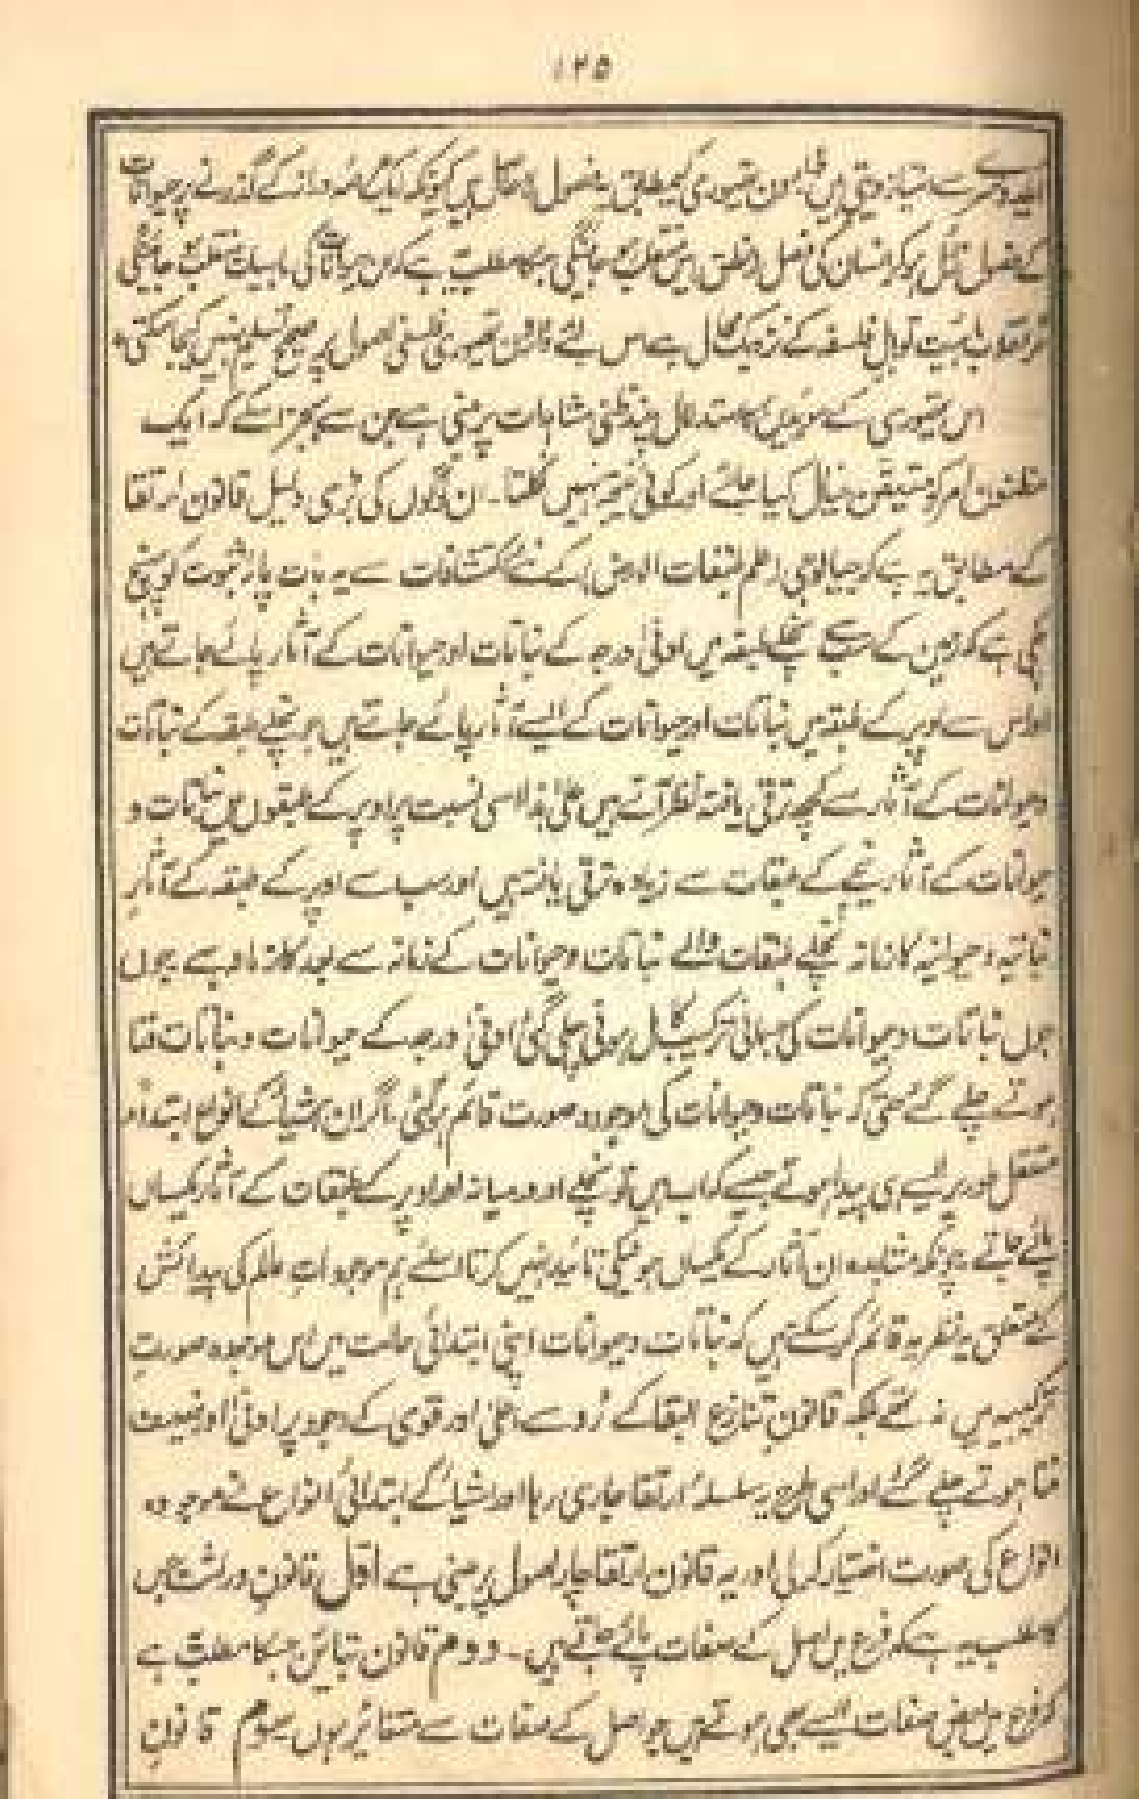 ۱۲۵
ایک دوسرے سے امتیاز دیتی ہیں ڈارون تھیوری کے مطابق یہ فصول زائل ہیں کیونکہ ایک عرصہ دراز کے گذرنے پر حیوانات
کے فصول زائل ہو کر انسان کی فصل ناطق میں منقلب ہو جائیگی جس کا مطلب یہ ہے کہ ان حیوانات کی ماہیات منقلب ہو جائینگی
تو انقلاب ماہیت تو اہل فلسفہ کے نزدیک محال ہے اس لئے ڈارون تھیوری فلسفی اصول پر صحیح تسلیم نہیں کیجا سکتی۔
اس تھیوری کے مؤیدین کا استدلال چند ظنی مشاہدات پر مبنی ہے جن سے بجز اسکے کہ ایک
مظنون امر کو متیقن خیال کیا جائے اور کوئی نتیجہ نہیں نکلتا۔ ان لوگوں کی بڑی دلیل قانون ارتقا
کے مطابق یہ ہے کہ جیالوجی (علم طبقات الارض) کے نئے اکتشافات سے یہ بات پایۂ ثبوت کو پہنچ
چکی ہے کہ زمین کے سب سے نچلے طبقہ میں ادنیٰ درجہ کے نباتات اور حیوانات کے آثار پائے جاتے ہیں
اور اس سے اوپر کے طبقہ میں نباتات اور حیوانات کے ایسے آثار پائے جاتے ہیں جو نچلے طبقہ کے نباتات
و حیوانات کے آثار سے کچھ ترقی یافتہ نظر آتے ہیں علیٰ ہذا اسی نسبت پر اوپر کے طبقوں میں نباتات و
حیوانات کے آثار نیچے کے طبقات سے زیادہ ترقی یافتہ ہیں اور سب سے اوپر کے طبقہ کے آثار
نباتیہ و حیوانیہ کا زمانہ نچلے طبقات والے نباتات و حیوانات کے زمانہ سے بعد کا زمانہ ہے جوں
جوں نباتات و حیوانات کی جسمانی ترکیب کامل ہوتی چلی گئی ادنیٰ درجہ کے حیوانات و نباتات فنا
ہوتے چلے گئے حتیٰ کہ نباتات و حیوانات کی موجودہ صورت قائم ہوگئی۔ اگر ان اشیا کے انواع ابتداً
مستقل طور پر ایسے ہی پیدا ہوتے جیسے کہ اب ہیں تو نچلے اور درمیانہ اور اوپر کے طبقات کے آثار یکساں
پائے جاتے چونکہ مشاہدہ ان آثار کے یکساں ہونیکی تائید نہیں کرتا اسلئے ہم موجودات عالم کی پیدائش
کے متعلق یہ نظریہ قائم کر سکتے ہیں کہ نباتات و حیوانات اپنی ابتدائی حالت میں اس موجودہ صورت
ترکیبیہ میں نہ تھے بلکہ قانون تنازع البقا کے رُو سے اعلیٰ اور قوی کے وجود پر ادنیٰ اور ضعیف
فنا ہوتے چلے گئے اور اسی طرح یہ سلسلۂ ارتقا جاری رہا اور اشیا کے ابتدائی انواع نے موجودہ
انواع کی صورت اختیار کر لی اور یہ قانون ارتقا چار اصول پر مبنی ہے اول قانون وراثت جس
کا مطلب یہ ہے کہ فرع میں اصل کے صفات پائے جاتے ہیں۔ دوم قانون تباین جسکا مطلب ہے
کہ فرع میں بعض صفات ایسے بھی ہوتے ہیں جو اصل کے صفات سے متغائر ہوں۔ سوم قانون